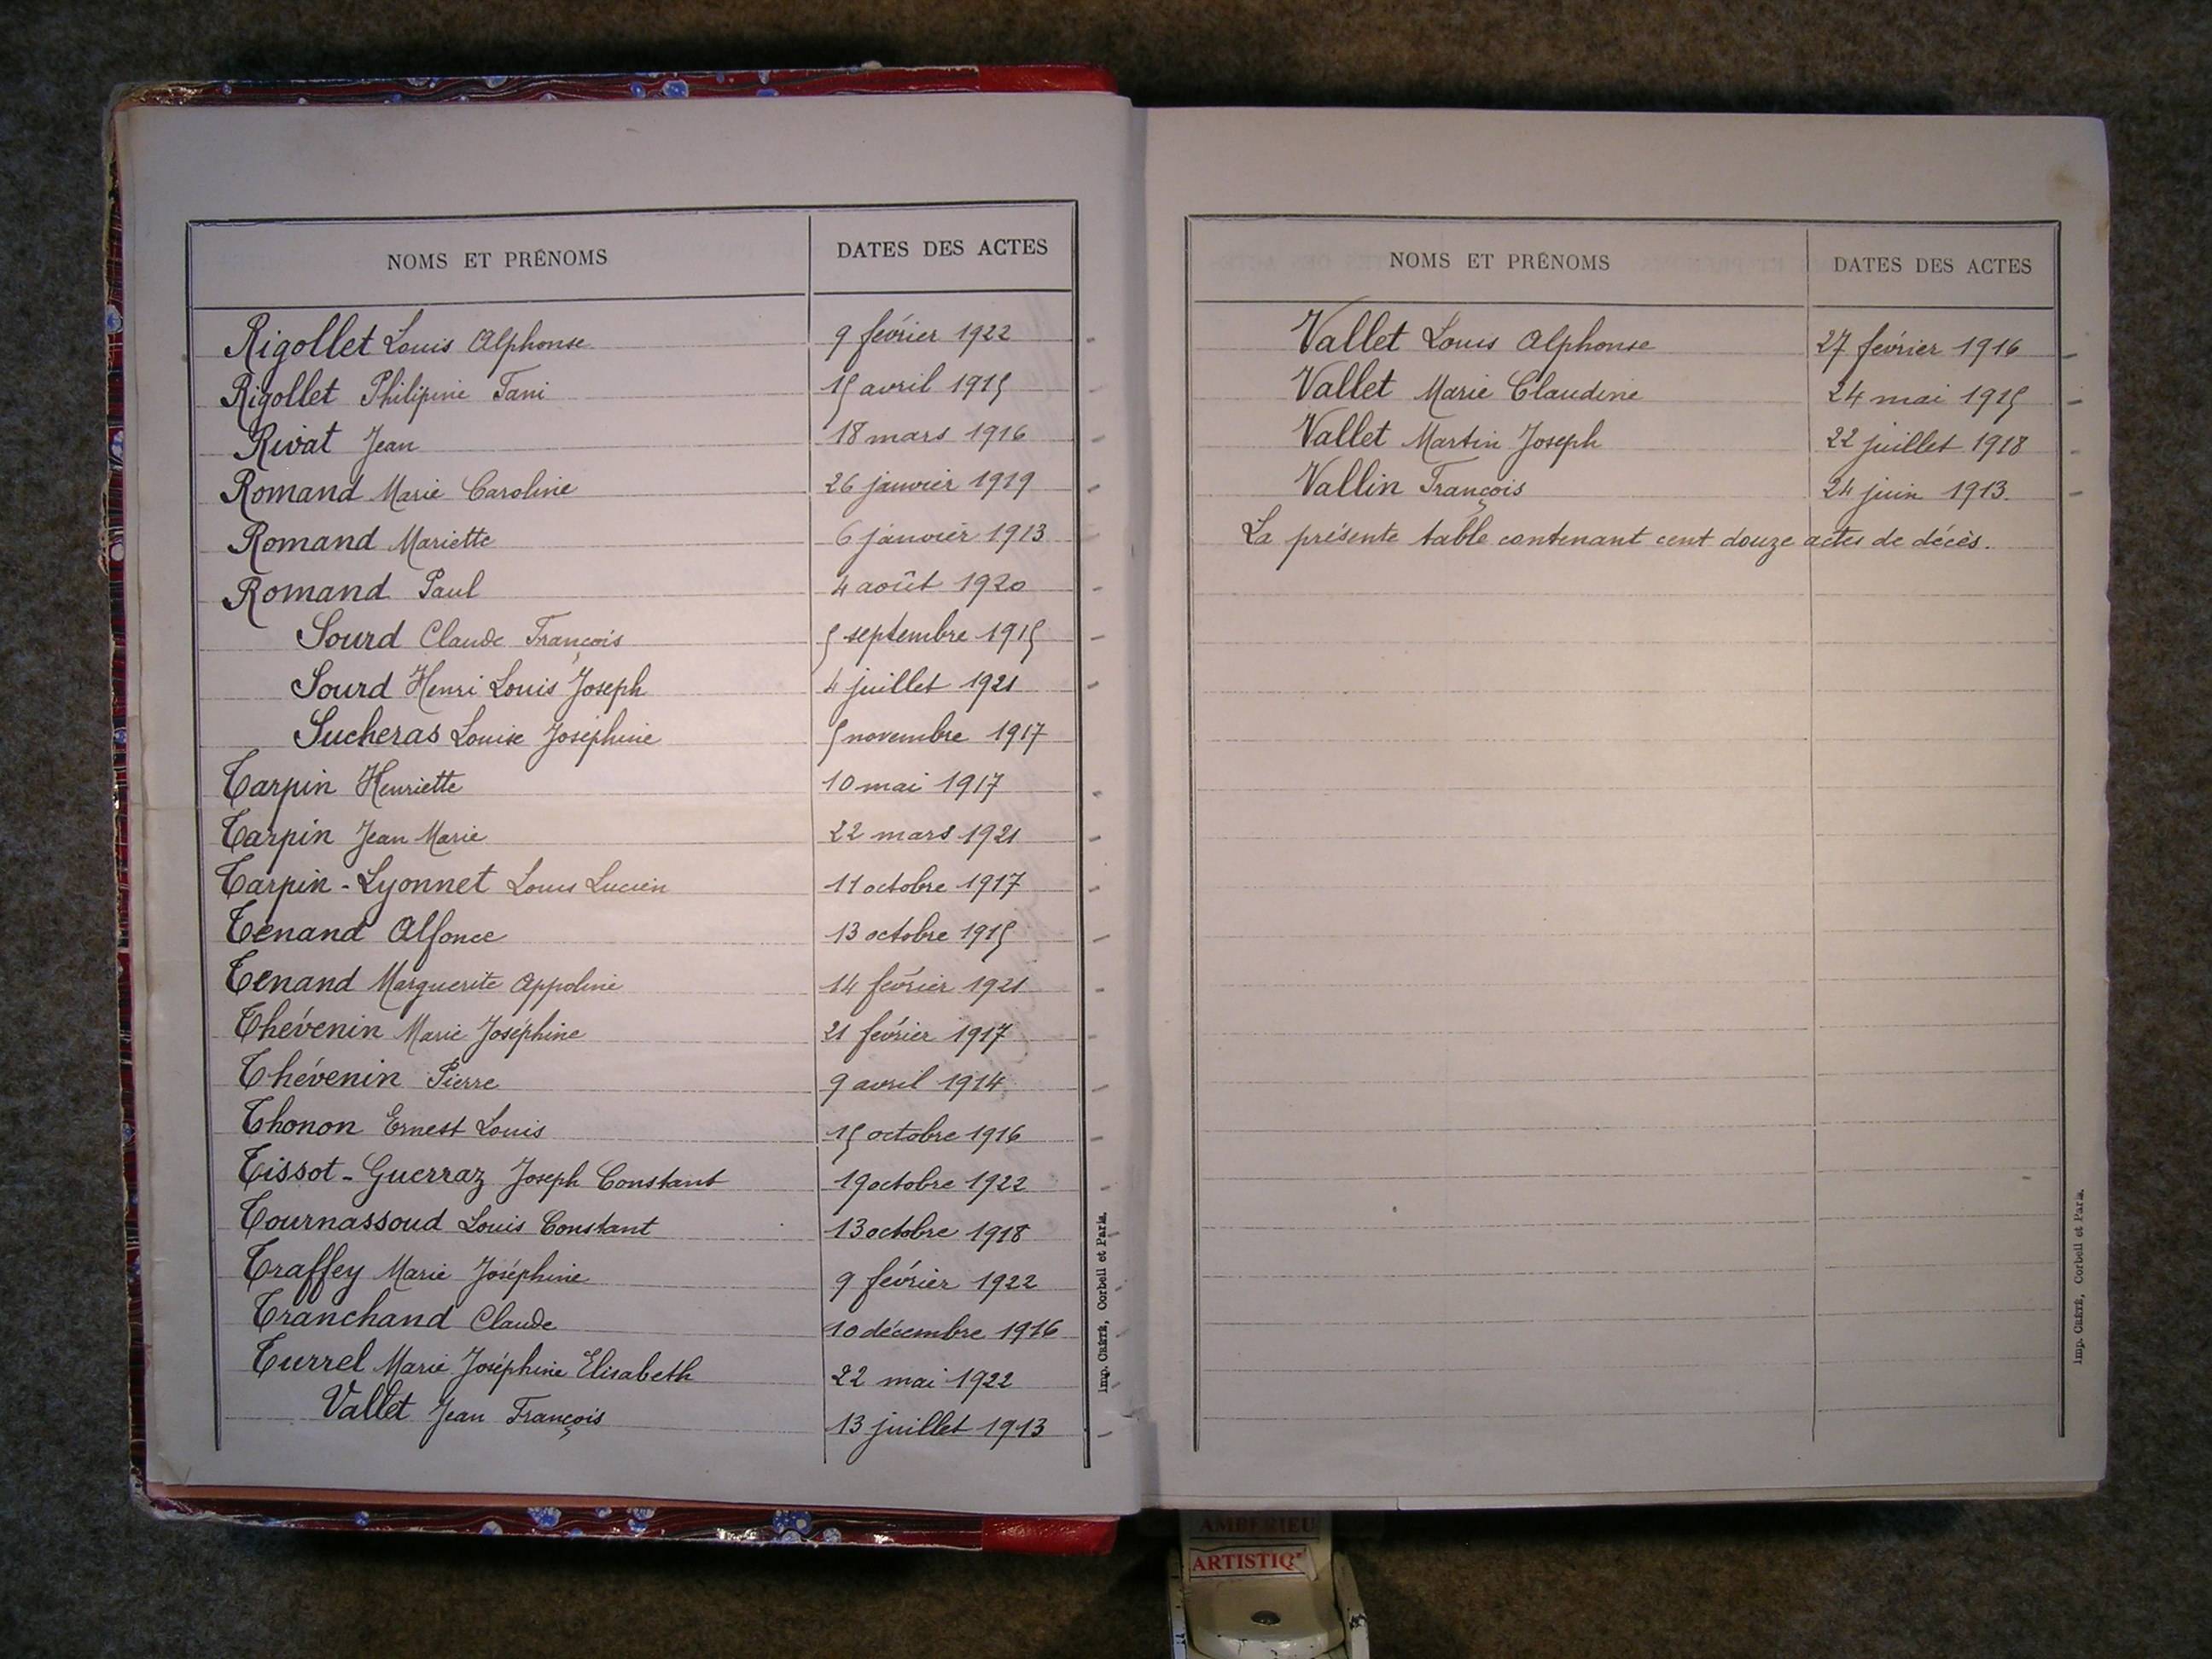 NOMS ET PRÉNOMS DATES DES ACTES
Rigollet Louis Alphonse 9 février 1922
Rigollet Philipine Fani 15 avril 1915
Rivat Jean 18 mars 1916
Romand Marie Caroline 26 janvier 1919
Romand Mariette 6 janvier 1913
Romand Paul 4 août 1920
Sourd Claude François 5 septembre 1915
Sourd Henri Louis Joseph 4 juillet 1921
Sucheras Louise Joséphine 5 novembre 1917
Tarpin Henriette 10 mai 1917
Tarpin Jean Marie 22 mars 1921
Tarpin-Lyonnet Louis Lucien 11 octobre 1917
Tenand Alfonce 13 octobre 1915
Tenand Marguerite Appoline 14 février 1921
Thévenin Marie Joséphine 21 février 1917
Thévenin Pierre 9 avril 1914
Thonon Ernest Louis 15 octobre 1916
Tissot-Guerraz Joseph Constant 19 octobre 1922
Tournassoud Louis Constant 13 octobre 1918
Traffey Marie Joséphine 9 février 1922
Tranchand Claude 10 décembre 1916
Turrel Marie Joséphine Elisabeth 22 mai 1922
Vallet Jean François 13 juillet 1913
Imp. CRÉTÉ, Corbeil et Paris.
NOMS ET PRÉNOMS DATES DES ACTES
Vallet Louis Alphonse 27 février 1916
Vallet Marie Claudine 24 mai 1915
Vallet Martin Joseph 22 juillet 1918
Vallin François 24 juin 1913
La présente table contenant cent douze actes de décès.
Imp. CRÉTÉ, Corbeil et Paris.
AMBERIEU
ARTISTIQ'